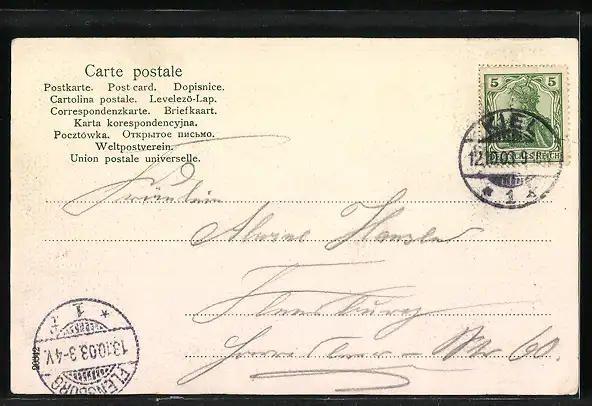 Carte postale
Postkarte. Post card. Dopisnice.
Cartolina postale. Levelező-Lap.
Correspondenzkarte. Briefkaart.
Karta korespondencyjna.
Pocztówka. Открытое письмо.
Weltpostverein.
Union postale universelle.
5 5
KIEL
12.10.03. 9
* 1 *
REICH
Fräulein
Alwine Hansen
Flensburg
60
1
13.10.03. 3-4 V.
FLENSBURG